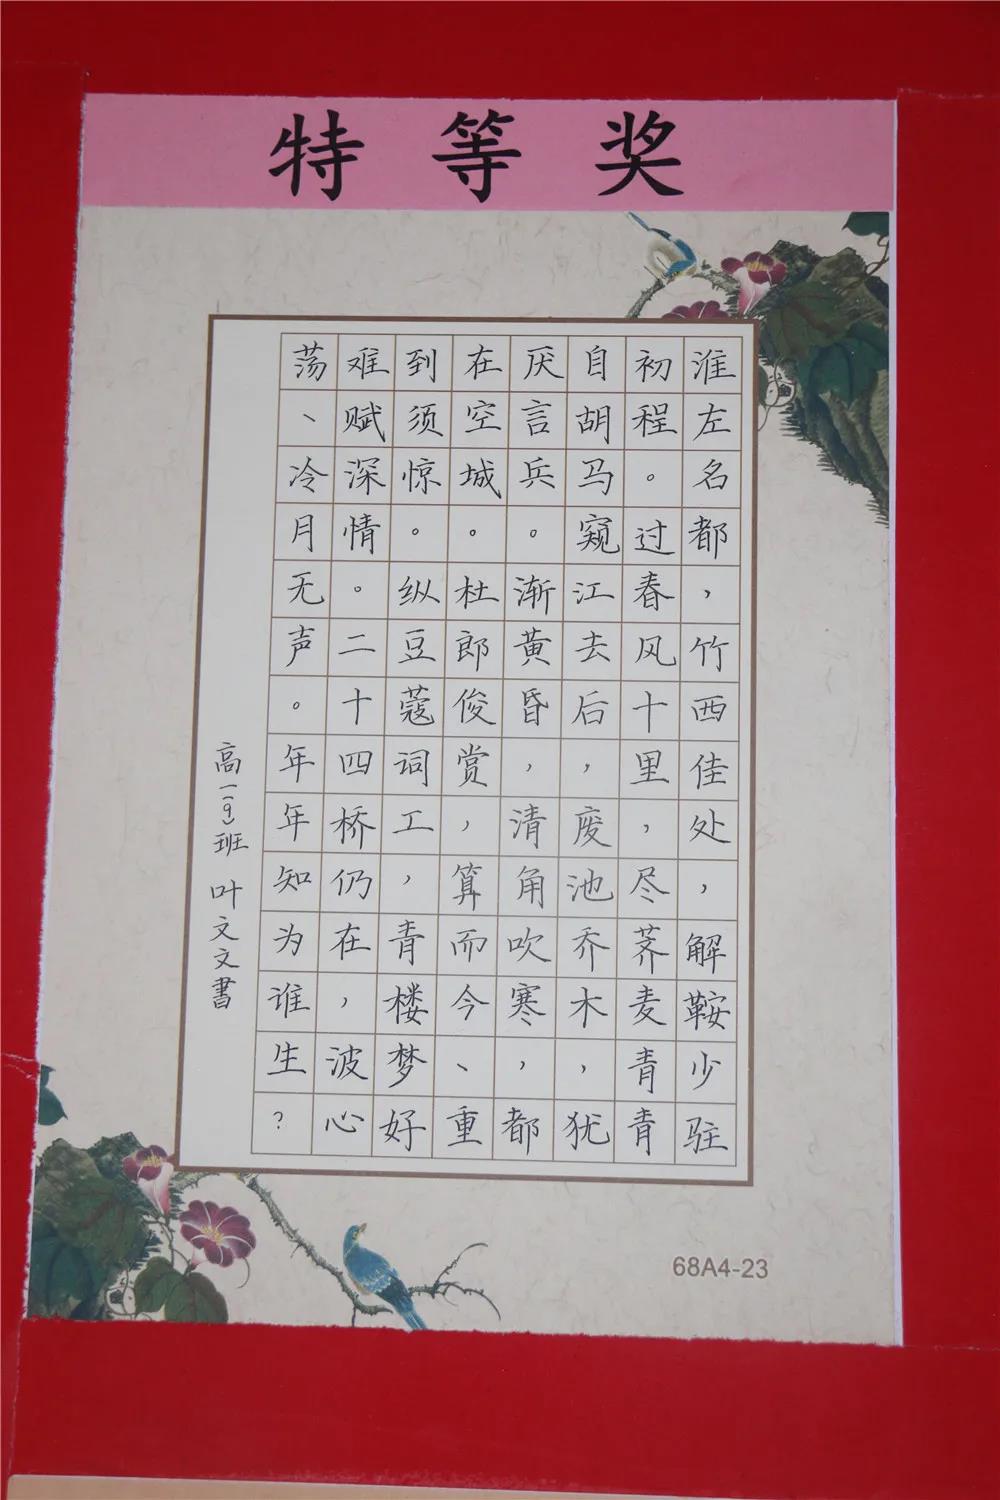 特等奖
淮左名都，竹西佳处，解鞍少驻
初程。过春风十里，尽荠麦青青
自胡马窥江去后，废池乔木，犹
厌言兵。渐黄昏，清角吹寒，都
在空城。杜郎俊赏，算而今、重
到须惊。纵豆蔻词工，青楼梦好
难赋深情。二十四桥仍在，波心
荡、冷月无声。年年知为谁生？
高一(9)班 叶文文書
68A4-23